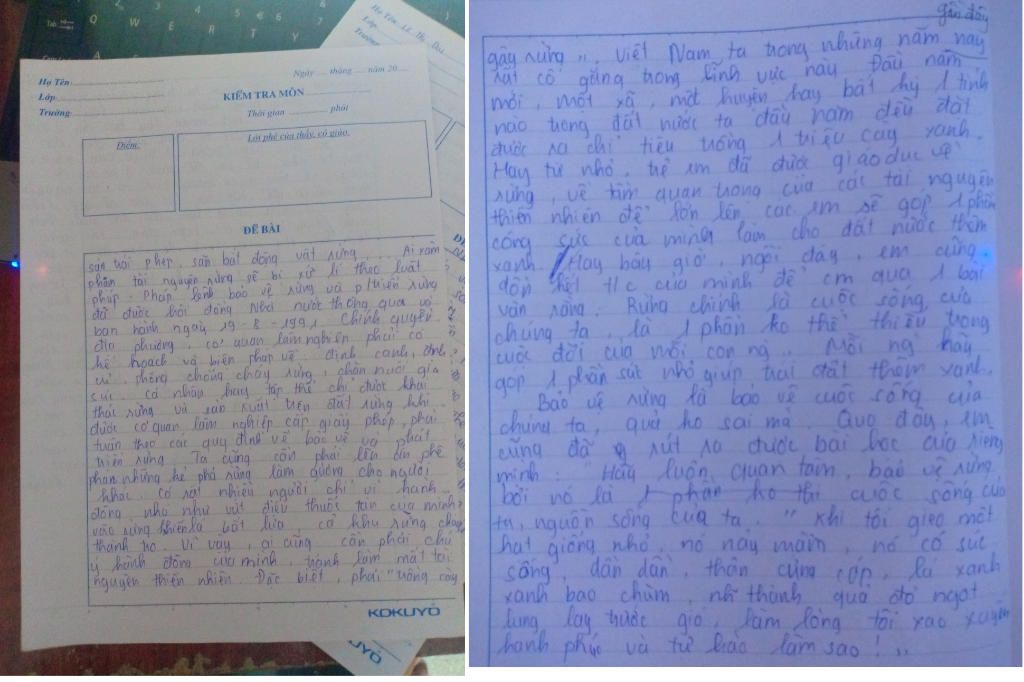 Họ Tên: Lê Thị
Lớp
Trường
Ngày .... tháng .... năm 20....
Họ Tên:
KIỂM TRA MÔN
Lớp
Thời gian phút
Trường:
Điểm.
Lời phê của thầy, cô giáo.
ĐỀ BÀI
săn trái phép, săn bắt động vật rừng ... Ai xâm
phạm tài nguyên rừng sẽ bị xử lí theo luật
pháp. Pháp lệnh bảo vệ rừng và p/triển rừng
đã được hội đồng Nhà nước thông qua và
ban hành ngày 19-8-1991. Chính quyền
địa phương, cơ quan lâm nghiệp phải có
kế hoạch và biện pháp về định canh, định
cư, phòng chống cháy rừng, chăn nuôi gia
súc. Cá nhân hay tập thể chỉ được khai
thác rừng và sản xuất trên đất rừng khi
được cơ quan lâm nghiệp cấp giấy phép, phải
tuân theo các quy định về bảo vệ và phát
triển rừng. Ta cũng cần phải lên án phê
phán những kẻ phá rừng làm gương cho người
khác. Có rất nhiều người chỉ vì hành
động nhỏ như vứt điếu thuốc tàn của mình
vào rừng khiến lá bắt lửa, cả khu rừng cháy
thành tro. Vì vậy, ai cũng cần phải chú
ý hành động của mình, tránh làm mất tài
nguyên thiên nhiên. Đặc biệt, phải "trồng cây
KOKUYO
KUYO
gần đây
gây rừng". Việt Nam ta trong những năm nay
rất cố gắng trong lĩnh vực này. Đầu năm
mới, một xã, một huyện hay bất kỳ 1 tỉnh
nào trong đất nước ta đầu năm đều đặt
được ra chỉ tiêu trồng 1 triệu cây xanh.
Hay từ nhỏ, trẻ em đã được giáo dục về
rừng, về tầm quan trọng của các tài nguyên
thiên nhiên để lớn lên các em sẽ góp 1 phần
công sức của mình làm cho đất nước thêm
xanh. Hay bây giờ ngồi đây, em cũng
dồn hết t/c của mình để cm qua 1 bài
văn rằng: Rừng chính là cuộc sống của
chúng ta, là 1 phần ko thể thiếu trong
cuộc đời của mỗi con ng. Mỗi ng hãy
góp 1 phần sức nhỏ giúp trái đất thêm xanh.
Bảo vệ rừng là bảo vệ cuộc sống của
chúng ta, quả ko sai mà. Qua đây, em
cũng đã rút ra được bài học của riêng
mình: "Hãy luôn quan tâm, bảo vệ rừng
bởi nó là 1 phần ko thể cuộc sống của
ta, nguồn sống của ta. "Khi tôi gieo một
hạt giống nhỏ, nó nảy mầm, nó có sức
sống, dần dần, thân cứng cáp, lá xanh
xanh bao chùm, những thành quả đỏ ngọt
lung lay trước gió, làm lòng tôi xao xuyến
hạnh phúc và tự hào làm sao!"